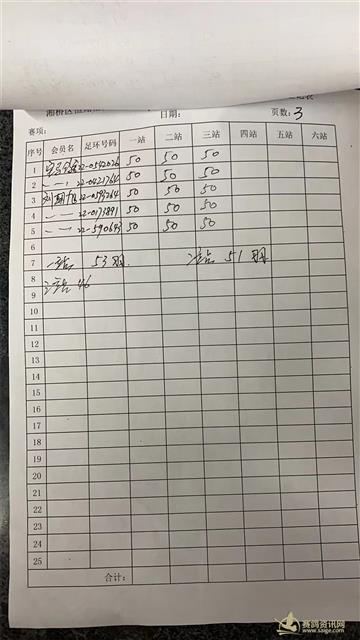 日期： 页数：3
赛项：
序号 会员名 足环号码 一站 二站 三站 四站 五站 六站
1 22-0542026 50 50 50
2 22-0421764 50 50 50
3 50 50 50
4 22-0173891 50 50 50
5 22-590645 50 50 50
6
7 一站 53羽 二站 51羽
8 三站 46
9
10
11
12
13
14
15
16
17
18
19
20
21
22
23
24
25
合计：
赛鸽资讯网
www.saige.com